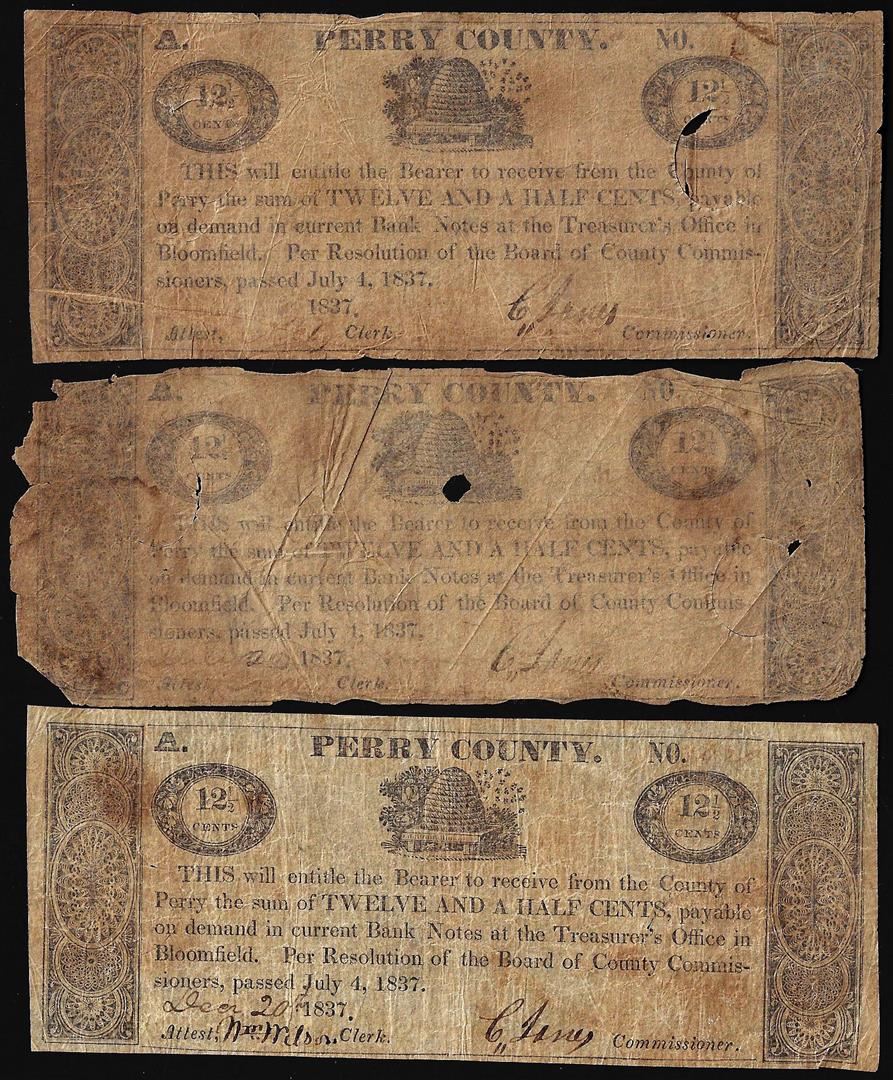 A. PERRY COUNTY. NO.
12½ CENTS 12½ CENTS
THIS will entitle the Bearer to receive from the County of
Perry the sum of TWELVE AND A HALF CENTS, payable
on demand in current Bank Notes at the Treasurer's Office in
Bloomfield. Per Resolution of the Board of County Commis-
sioners, passed July 4, 1837.
1837.
Attest, Clerk. C Jones Commissioner.
A. PERRY COUNTY. NO.
12½ CENTS 12½ CENTS
THIS will entitle the Bearer to receive from the County of
Perry the sum of TWELVE AND A HALF CENTS, payable
on demand in current Bank Notes at the Treasurer's Office in
Bloomfield. Per Resolution of the Board of County Commis-
sioners, passed July 4, 1837.
20 1837.
Attest, Clerk. C Jones Commissioner.
A. PERRY COUNTY. NO.
12½ CENTS 12½ CENTS
THIS will entitle the Bearer to receive from the County of
Perry the sum of TWELVE AND A HALF CENTS, payable
on demand in current Bank Notes at the Treasurer's Office in
Bloomfield. Per Resolution of the Board of County Commis-
sioners, passed July 4, 1837.
Decr 20th 1837.
Attest, Wm. Wilson, Clerk. C Jones Commissioner.